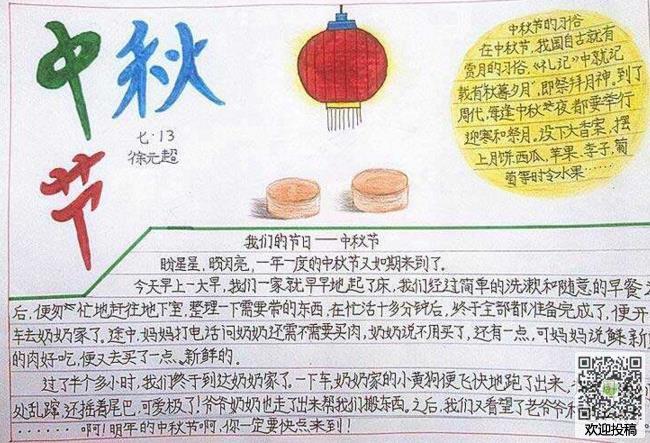 中秋
节
七·13
徐元超
中秋节的习俗
在中秋节,我国自古就有
赏月的习俗,《礼记》中就记
载有"秋暮夕月",即祭拜月神。到了
周代,每逢中秋夜都要举行
迎寒和祭月。设下大香案,摆
上月饼、西瓜、苹果、李子、葡
萄等时令水果……
我们的节日——中秋节
盼星星,盼月亮,一年一度的中秋节又如期来到了。
今天早上一大早,我们一家就早早地起了床,我们经过简单的洗漱和随意的早餐之
后,便匆忙地赶往地下室,整理一下需要带的东西,在忙活十多分钟后,终于全部都准备完成了,便开
车去奶奶家了。途中,妈妈打电话问奶奶还需不需要买肉,奶奶说不用买了,还有一点,可妈妈说鲜新
的肉好吃,便又去买了一点、新鲜的。
过了半个多小时,我们终于到达奶奶家了。一下车,奶奶家的小黄狗便飞快地跑了出来,
处乱蹿,还摇着尾巴,可爱极了!爷爷奶奶也走了出来帮我们搬东西。之后,我们又看望了老爷爷和
……啊!明年的中秋节啊,你一定要快点来到!
欢迎投稿